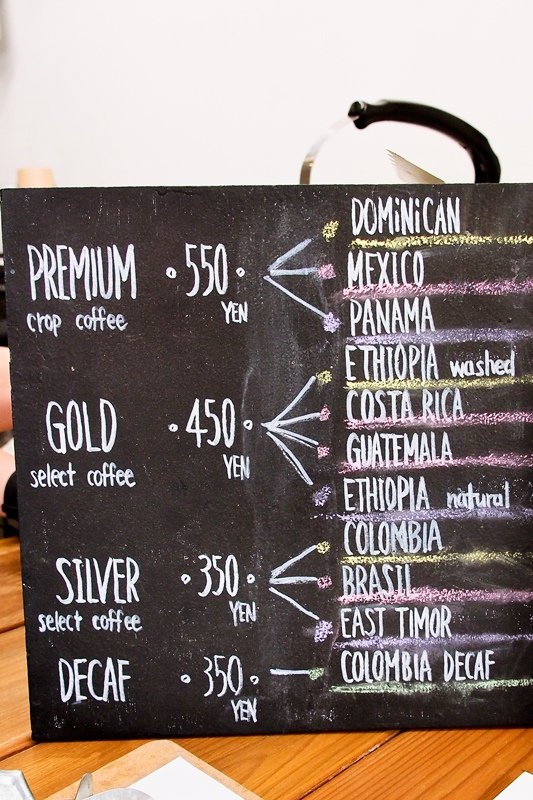 PREMIUM
crop coffee
550
YEN
DOMiNiCAN
MEXICO
PANAMA
GOLD
select coffee
450
YEN
ETHIOPIA washed
COSTA RICA
GUATEMALA
ETHIOPIA natural
SILVER
select coffee
350
YEN
COLOMBIA
BRASIL
EAST TIMOR
DECAF
350
YEN
COLOMBIA DECAF